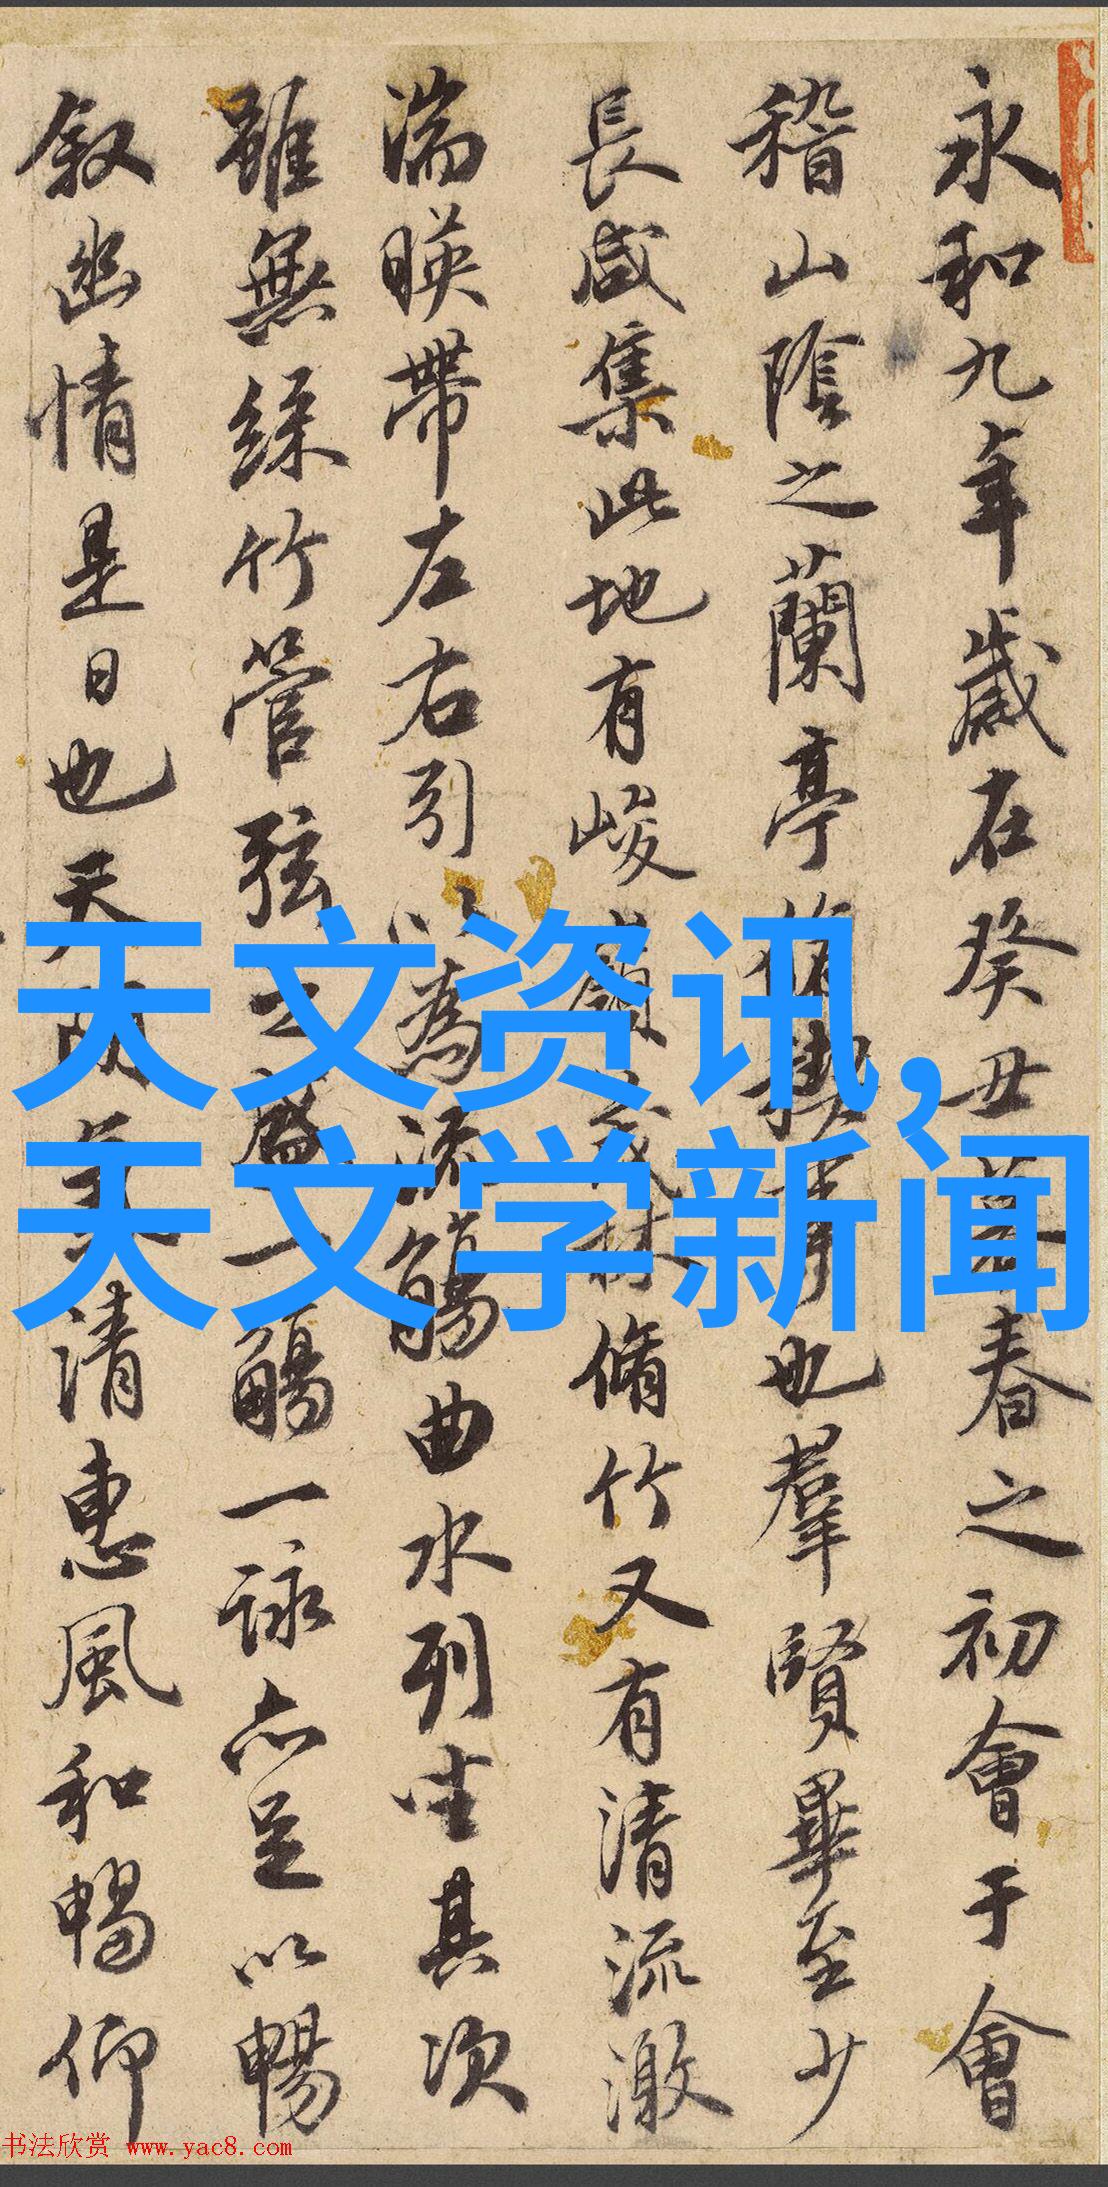 永和九年歲在癸丑暮春之初會于會
稽山陰之蘭亭脩禊事也羣賢畢至少
長咸集此地有峻嶺茂林脩竹又有清流激
湍暎帶左右引以為流觴曲水列坐其次
雖無絲竹管弦之盛一觴一詠亦足以暢
叙幽情是日也天朗氣清惠風和暢仰
天文资讯,
天文学新闻
书法欣赏 www.yac8.com